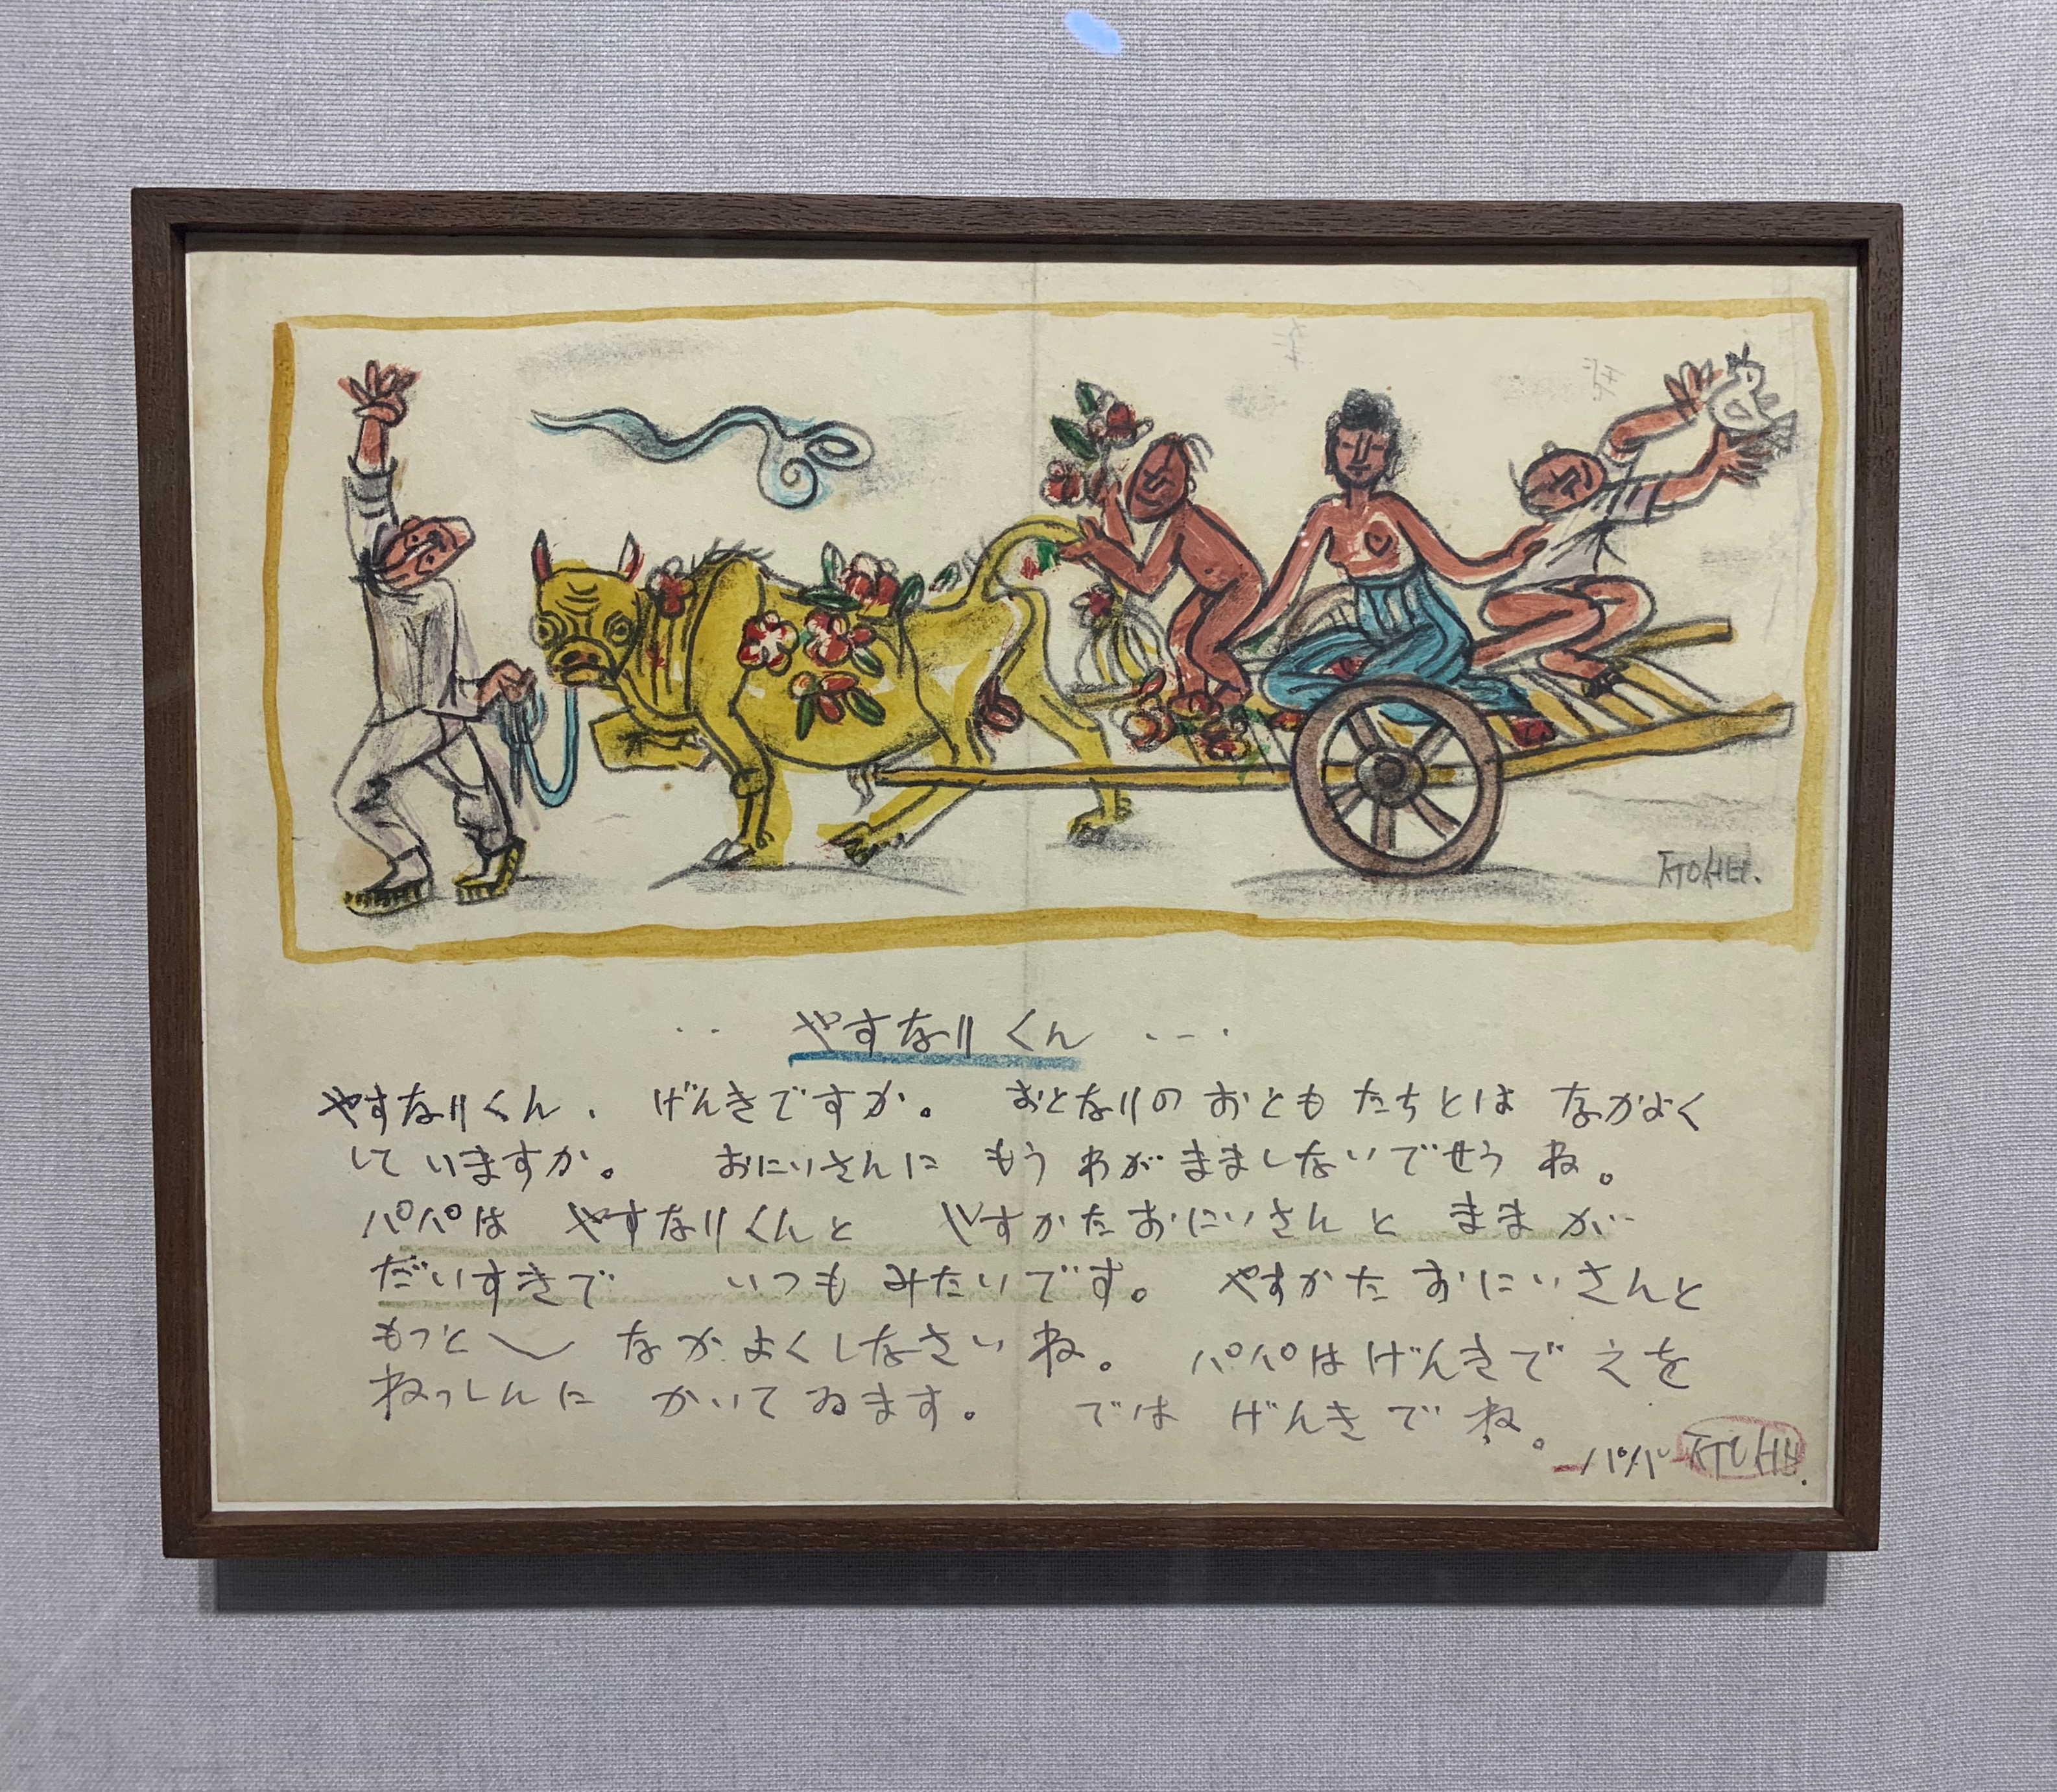 ㅈㅜㅇㅅㅓㅂ
やすなりくん
やすなりくん. げんきですか。 おとなりの おともたちとは なかよく
していますか。 おにいさんに もう わがまましないでせうね。
パパは やすなりくんと やすかたおにいさんと ままが
だいすきで いつも みたいです。 やすかた おにいさんと
もっと〵 なかよくしなさいね。 パパはげんきで えを
ねっしんに かいてゐます。 では げんきでね。
パパ ㅈㅜㅇㅅㅓㅂ.